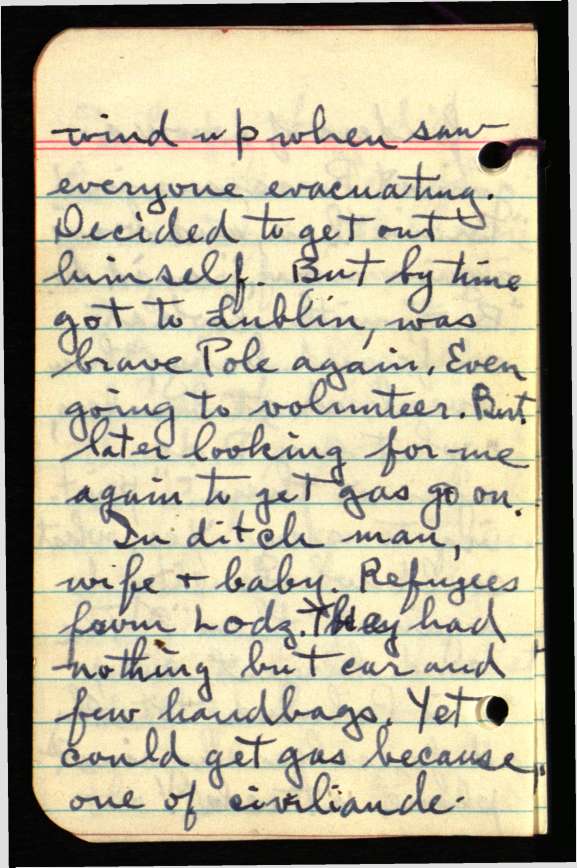 wind up when saw
everyone evacuating.
Decided to get out
himself. But by time
got to Lublin, was
brave Pole again. Even
going to volunteer. But
later looking for me
again to get gas go on.
In ditch man,
wife + baby. Refugees
from Lodz. They had
nothing but car and
few handbags. Yet
could get gas because
one of civilian de-